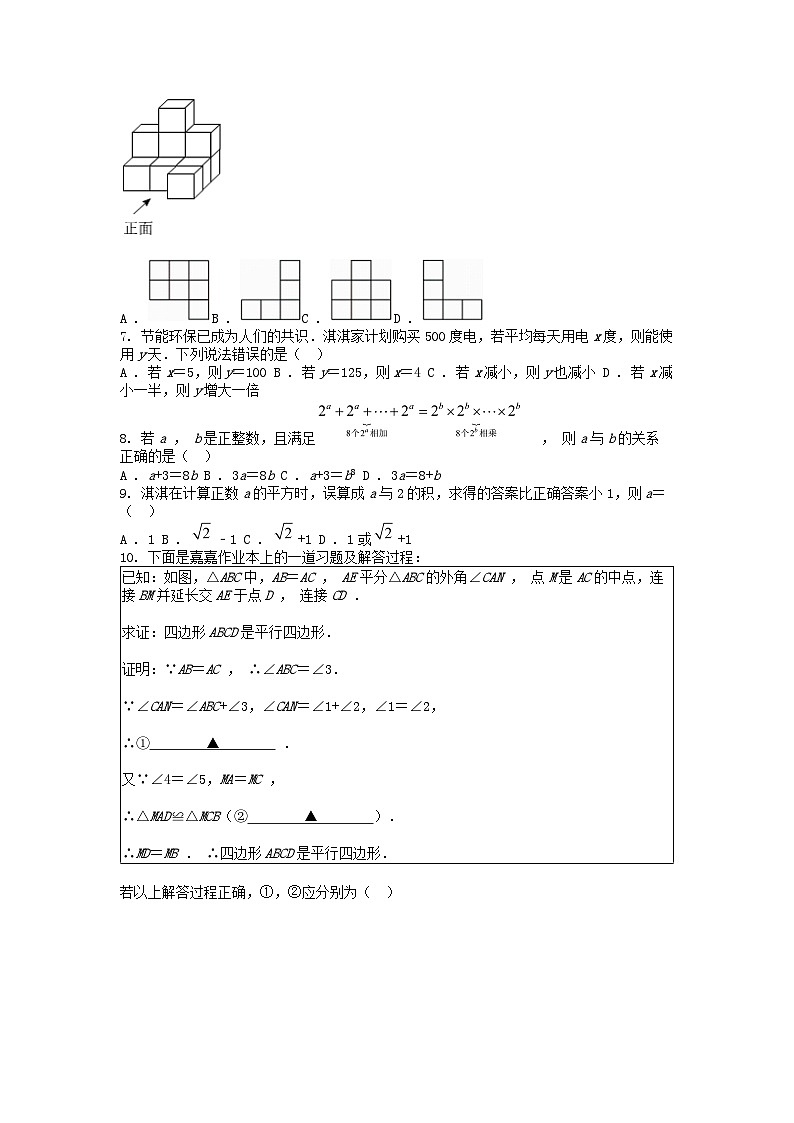 正面
A . B . C . D .
7. 节能环保已成为人们的共识．淇淇家计划购买 500 度电，若平均每天用电 x 度，则能使
用 y 天．下列说法错误的是（ ）
A ．若 x＝5，则 y＝100 B ．若 y＝125，则 x＝4 C ．若 x 减小，则 y 也减小 D ．若 x 减
小一半，则 y 增大一倍
8. 若 a ， b 是正整数，且满足 2^a+2^a+⋯+2^a（8个2^a相加）=2^b×2^b×⋯×2^b（8个2^b相乘） ， 则 a 与 b 的关系
正确的是（ ）
A ．a+3＝8b B ．3a＝8b C ．a+3＝b^8 D ．3a＝8+b
9. 淇淇在计算正数 a 的平方时，误算成 a 与 2 的积，求得的答案比正确答案小 1，则 a＝
（ ）
A ．1 B ．√2﹣1 C ．√2+1 D ．1 或√2+1
10. 下面是嘉嘉作业本上的一道习题及解答过程：
已知：如图，△ABC 中，AB＝AC ， AE 平分△ABC 的外角∠CAN ， 点 M 是 AC 的中点，连
接 BM 并延长交 AE 于点 D ， 连接 CD ．
求证：四边形 ABCD 是平行四边形．
证明：∵AB＝AC ， ∴∠ABC＝∠3．
∵∠CAN＝∠ABC+∠3，∠CAN＝∠1+∠2，∠1＝∠2，
∴①____▲____ ．
又∵∠4＝∠5，MA＝MC ，
∴△MAD≌△MCB（②____▲____）．
∴MD＝MB ． ∴四边形 ABCD 是平行四边形．
若以上解答过程正确，①，②应分别为（ ）